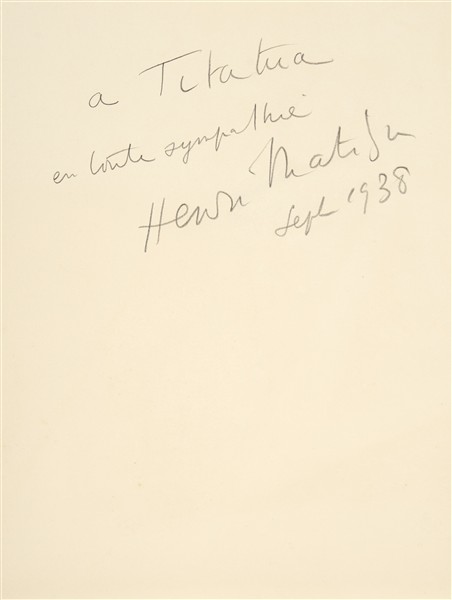 a Titania
en toute sympathie
Henri Matisse
Sept 1938